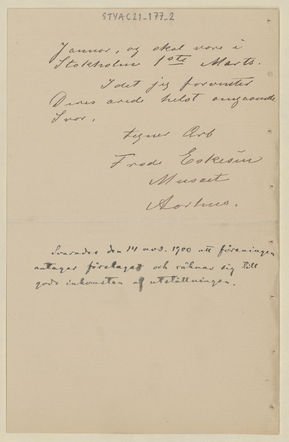 STYAC21-177-2
Januar, og skal være i
Stokholm 1ste Marts.
I det jeg forventer
Deres ærede helst omgaaende
Svar.
tegner Arb
Frode Eskesen
Museet
Aarhus.
Svarades den 14 nov. 1900 att föreningen
antager förslaget och räknar sig till
godo inkomsten af utställningen.